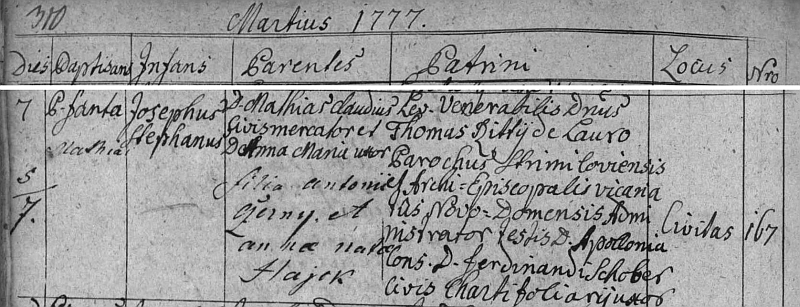 310 Martius 1777.
Dies Baptisans Infans Parentes Patrini Locus Nro
7
5/7.
P. Santa
Mathias
Josephus
Stephanus
D. Mathias Claudius
Civis mercator et
D. Anna Maria uxor
filia Antonii
Czerny et
annæ natæ
Hajek
Rev. Venerabilis Dnus
Thomas Dittÿ de Lauro
Parochus Strimiloviensis
Archi-Episcopalis vicana
rius Novo-Domensis Admi
nistrator testis D. Apollonia
Cons. D. Ferdinandi Schober
Civis Chartifoliarij uxor
Civitas
167